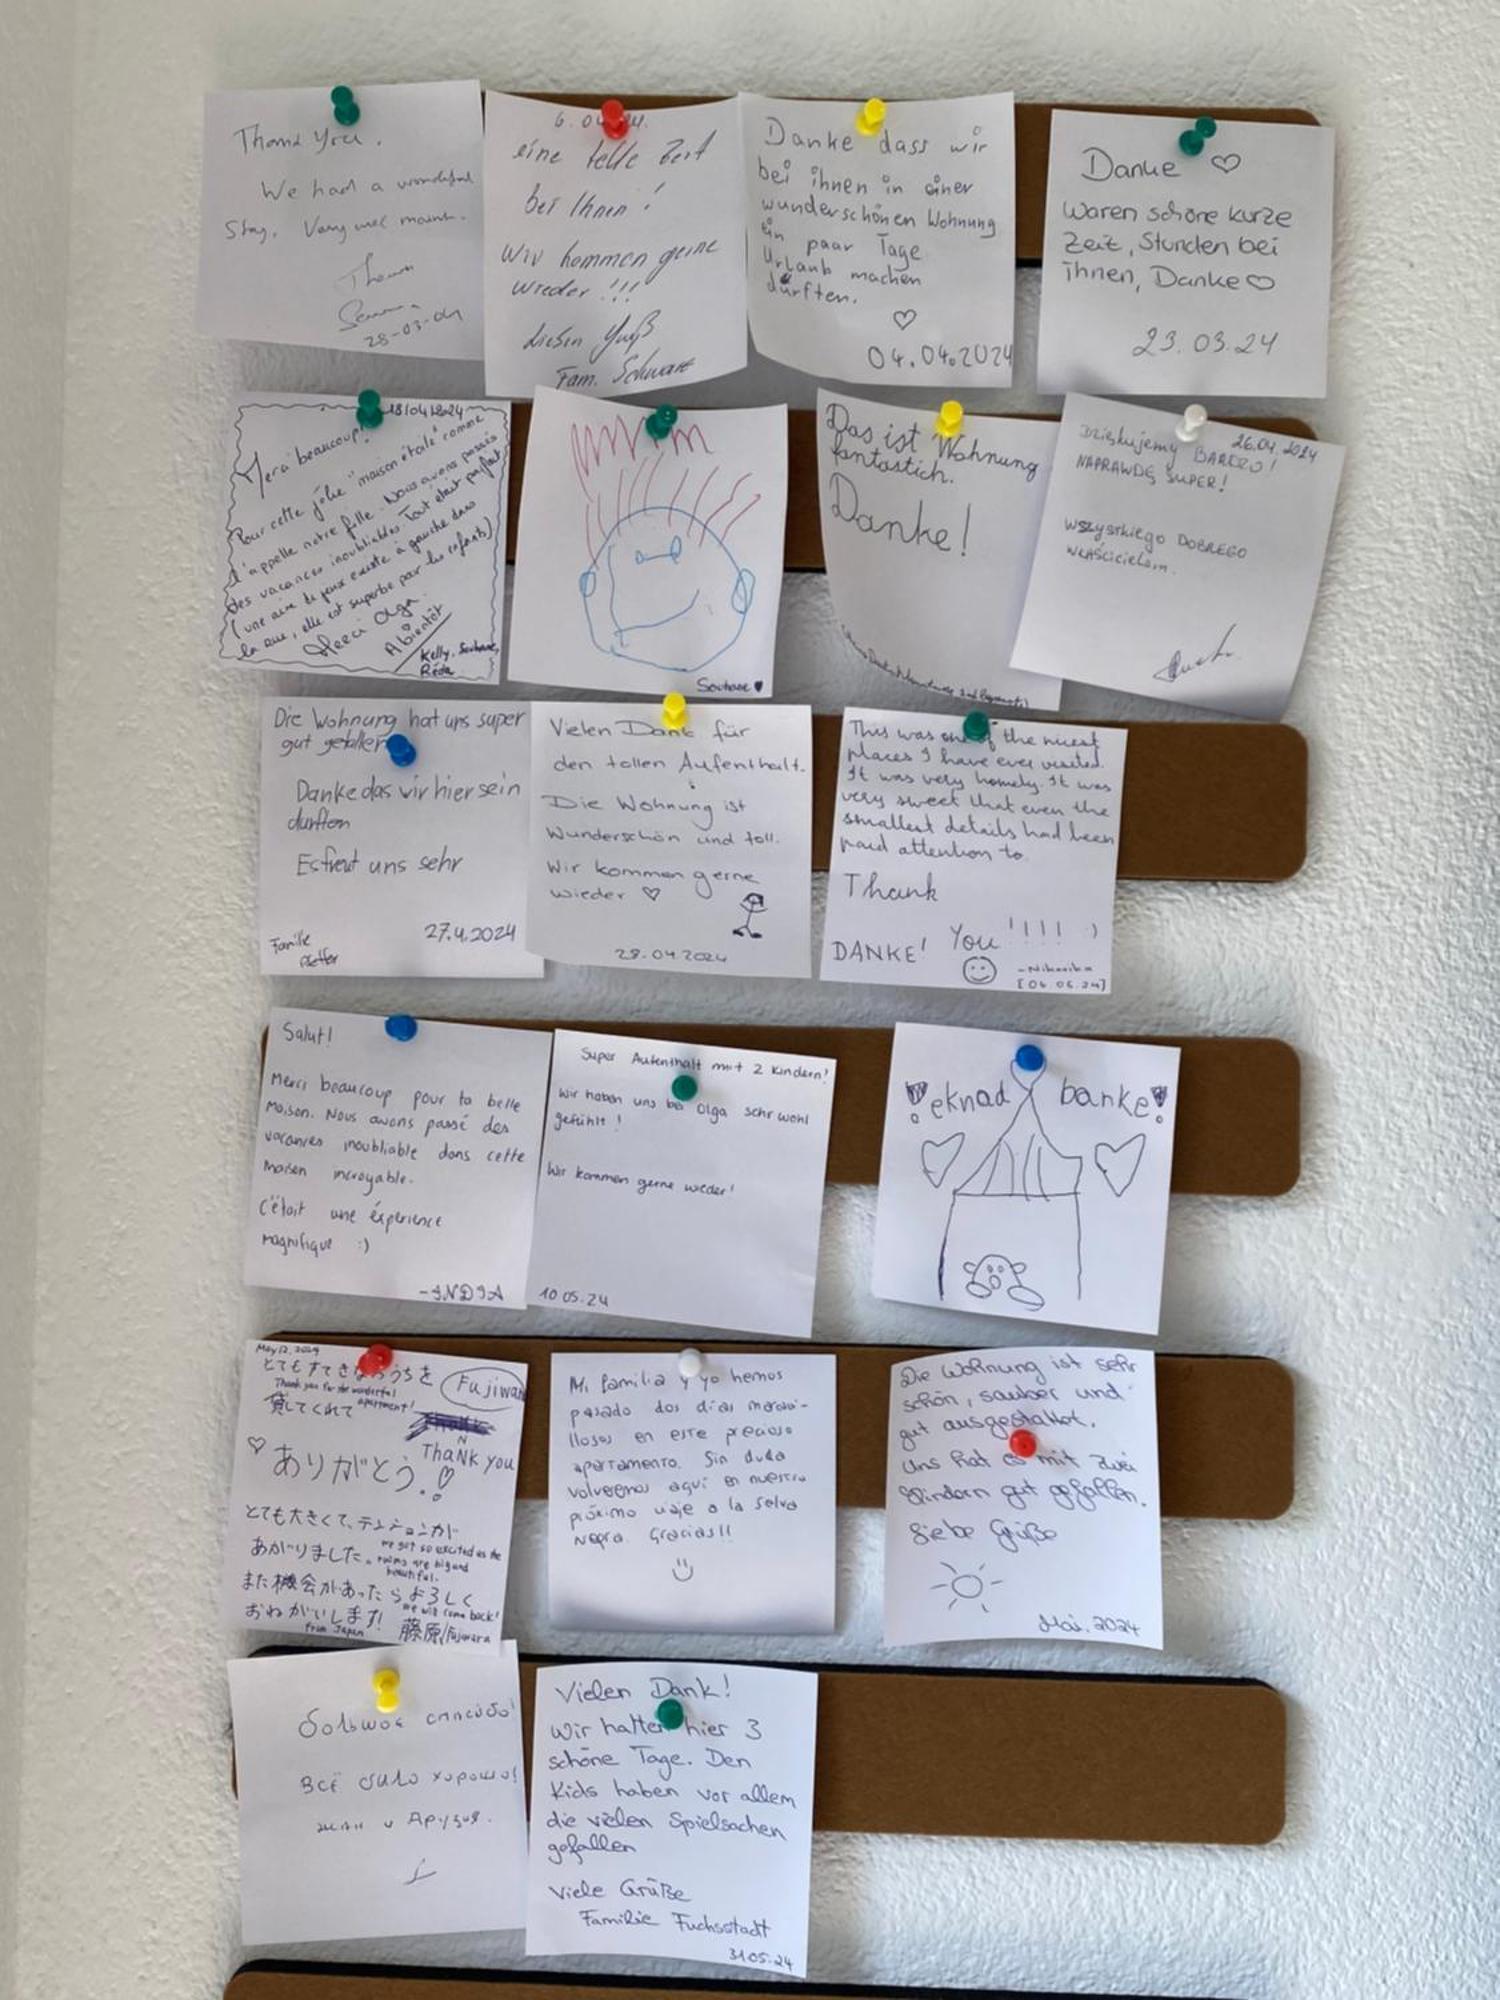 Thank You.
We had a wonderful
Stay.
28-03-04
6. 04.
eine tolle Zeit
bei Ihnen!
Wir kommen gerne
wieder!!!
Fam. Schwarz
Danke dass wir
bei ihnen in einer
wunderschönen Wohnung
ein paar Tage
Urlaub machen
dürften.
♡
04.04.2024
Danke ♡
Waren schöne kurze
Zeit, Stunden bei
ihnen, Danke♡
23.03.24
18/04/2024
Merci beaucoup!
Pour cette jolie "maison étoile" comme
l'appelle notre fille. Nous avons passés
des vacances inoubliables. Tout était parfait
(une aire de jeux existe à gauche dans
la rue, elle est superbe pour les enfants)
Merci Olga.
A bientôt
Kelly, Souhane,
Réda
Souhane ♥
Das ist Wohnung
fantastich.
Danke!
26.04.2024
Dziękujemy BARDZO!
NAPRAWDĘ SUPER!
WSZystkiego DOBREGO
WŁAŚCICIELOM.
Die Wohnung hat uns super
gut gefallen
Danke das wir hier sein
durften
Es freut uns sehr
27.4.2024
Familie
Pfeffer
Vielen Dank für
den tollen Aufenthalt.
Die Wohnung ist
Wunderschön und toll.
Wir kommen gerne
wieder ♡
28.04.2024
This was one of the nicest
places I have ever visited.
It was very homely. It was
very sweet that even the
smallest details had been
paid attention to.
Thank
You !!!! :)
DANKE!
[04.05.24]
Salut!
Merci beaucoup pour ta belle
maison. Nous avons passé des
vacances inoubliable dans cette
maison incroyable.
C'était une éxperience
magnifique :)
-INDIA
Super Aufenthalt mit 2 Kindern!
Wir haben uns bei Olga sehr wohl
gefühlt!
Wir kommen gerne wieder!
10.05.24
eknad banke!
May 12, 2024
とてもすてきなおうちを
Thank you for the wonderful
apartment!
貸してくれて
Fujiwara
♡ ありがとう。
ThaNK you
とても大きくて、テンションが
あがりました。
we got so excited as the
rooms are big and
beautiful.
また機会があったらよろしく
おねがいします!
we will come back!
from Japan
藤原/Fujiwara
Mi familia y yo hemos
pasado dos días maravi-
llosos en este precioso
apartamento. Sin duda
volveremos aquí en nuestro
próximo viaje a la Selva
Negra. Gracias!!
Die Wohnung ist sehr
schön, sauber und
gut ausgestattet.
Uns hat es mit zwei
Kindern gut gefallen.
Liebe Grüße
Mai. 2024
большое спасибо!
Всё было хорошо!
Vielen Dank!
Wir hatten hier 3
schöne Tage. Den
Kids haben vor allem
die vielen Spielsachen
gefallen
Viele Grüße
Familie Fuchsstadt
31.05.24